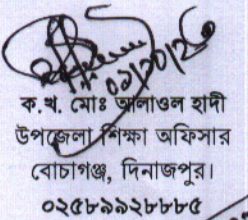 ক.খ. মোঃ আলাওল হাদী
উপজেলা শিক্ষা অফিসার
বোচাগঞ্জ, দিনাজপুর।
০২৫৮৯৯২৮৮৮৫